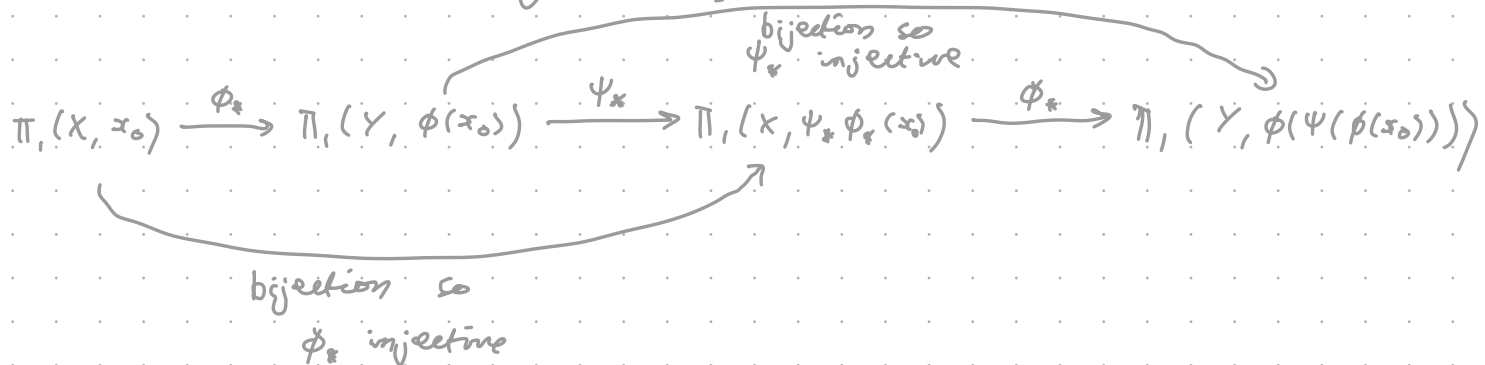 bijection so
ψ_* injective
π₁(X, x₀) →^{φ_*} π₁(Y, φ(x₀)) →^{ψ_*} π₁(X, ψ_* φ_*(x₀)) →^{φ_*} π₁(Y, φ(ψ(φ(x₀))))
bijection so
φ_* injective